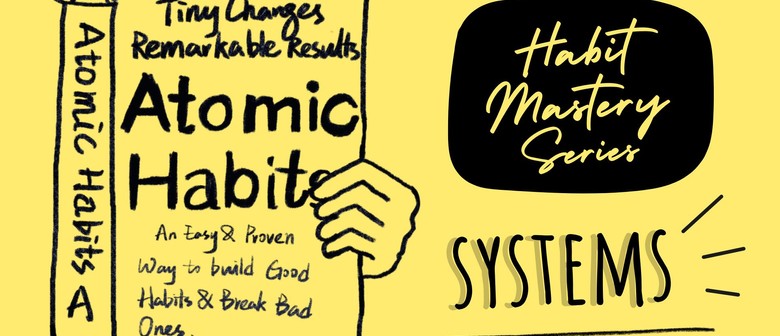 Atomic Habits A
Tiny Changes
Remarkable Results
Atomic
Habits
An Easy & Proven
Way to build Good
Habits & Break Bad
Ones.
Habit
Mastery
Series
SYSTEMS